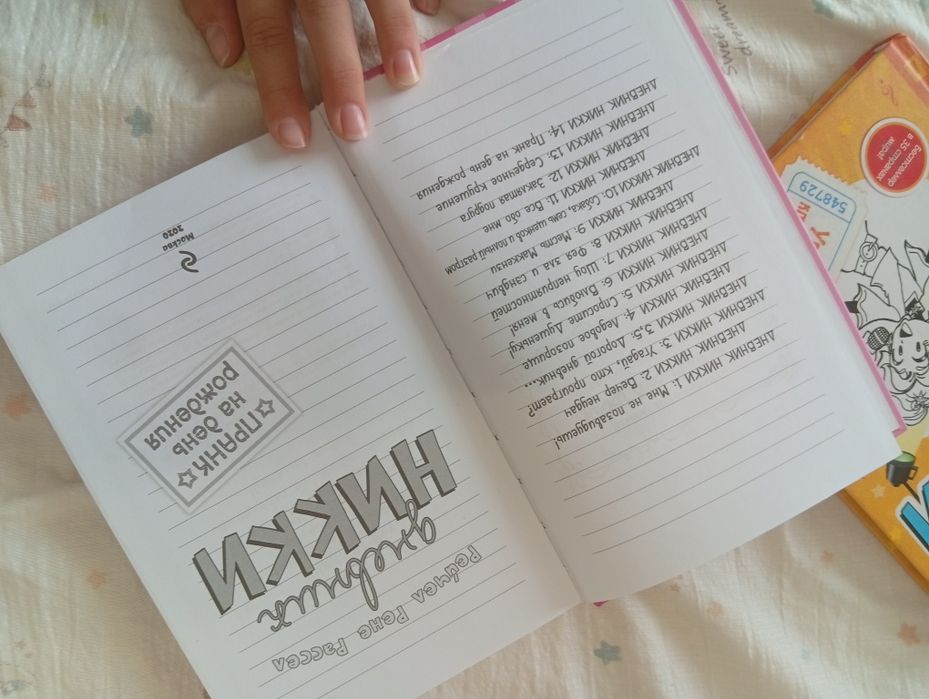 ДНЕВНИК НИККИ 1: Мне не позавидуешь!
ДНЕВНИК НИККИ 2: Вечер неудач
ДНЕВНИК НИККИ 3: Угадай, кто проиграет?
ДНЕВНИК НИККИ 3,5: Дорогой дневник...
ДНЕВНИК НИККИ 4: Ледовое позорище
ДНЕВНИК НИККИ 5: Спросите Душеньку!
ДНЕВНИК НИККИ 6: Влюбись в меня!
ДНЕВНИК НИККИ 7: Шоу неприятностей
ДНЕВНИК НИККИ 8: Фея зла и Сандвич
ДНЕВНИК НИККИ 9: Месть Маккензи
ДНЕВНИК НИККИ 10: Собака, семь щенков и полный разгром
ДНЕВНИК НИККИ 11: Все обо мне
ДНЕВНИК НИККИ 12: Заклятая подруга
ДНЕВНИК НИККИ 13: Сердечное крушение
ДНЕВНИК НИККИ 14: Пранк на день рождения
Рейчел Рене Рассел
дневник
НИККИ
ПРАНК
на день
рождения
Москва
2020
Бестселлер
в 35 странах
мира!
548729
Sweet